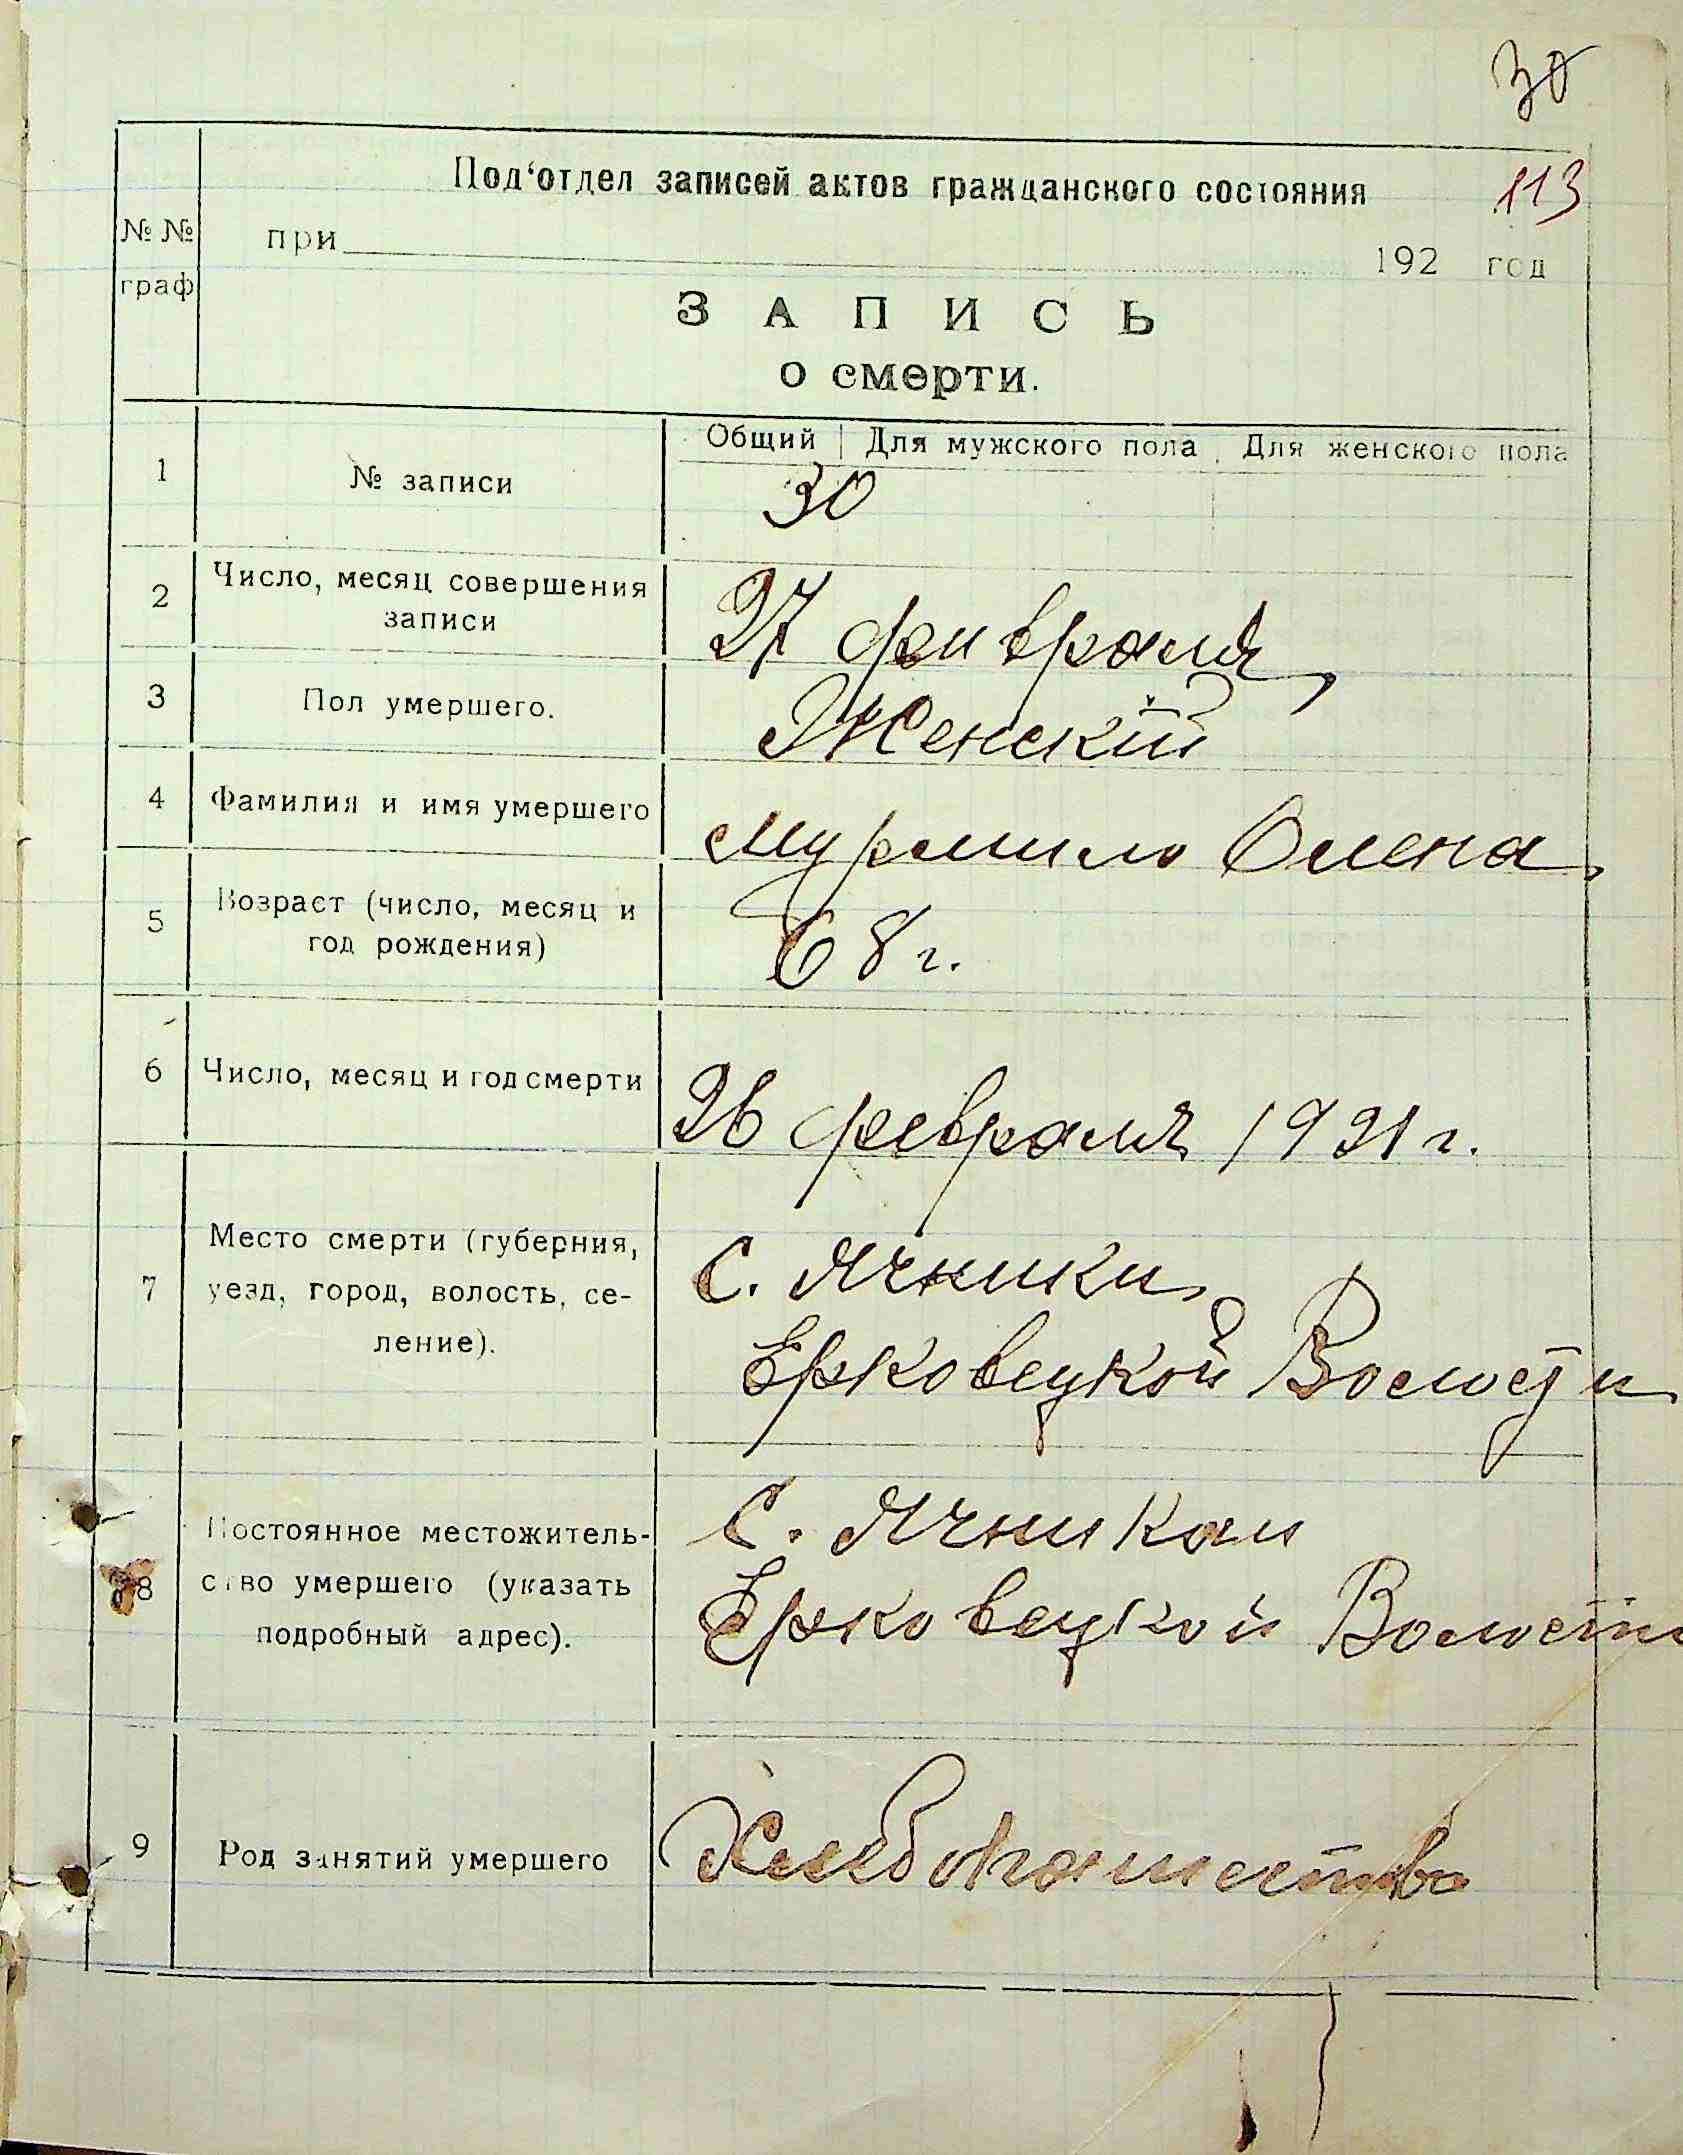 30
Под‘отдел записей актов гражданского состояния
113
№ №
граф
при 192 год
ЗАПИСЬ
о смерти.
Общий Для мужского пола Для женского пола
1 № записи
30
2 Число, месяц совершения
записи
27 фивраля
3 Пол умершего.
Женский
4 Фамилия и имя умершего
Мурмило Олена
5 Возраст (число, месяц и
год рождения)
68 г.
6 Число, месяц и год смерти
26 февраля 1921 г.
7 Место смерти (губерния,
уезд, город, волость, се-
ление).
С. Ячники
Ерковецкой Волости
8 Постоянное местожитель-
ство умершего (указать
подробный адрес).
С. Ячникаи
Ерковецкой Волости
9 Род занятий умершего
Хлебопашества